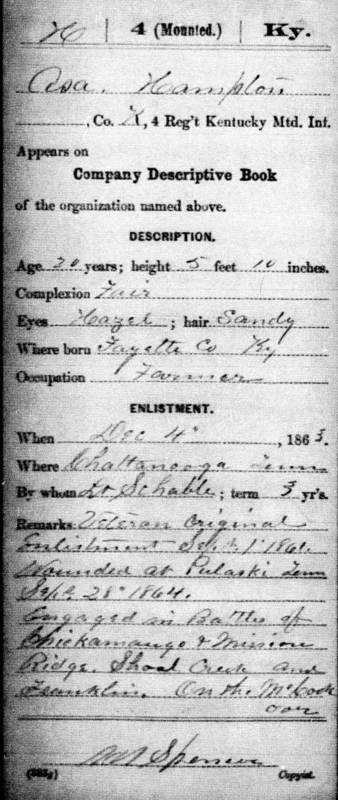 H | 4 (Mounted.) | Ky.
Asa. Hampton
, Co. K, 4 Reg't Kentucky Mtd. Inf.
Appears on
Company Descriptive Book
of the organization named above.
DESCRIPTION.
Age 20 years; height 5 feet 10 inches.
Complexion Fair
Eyes Hazel; hair Sandy
Where born Fayette Co Ky
Occupation Farmer
ENLISTMENT.
When Dec 4", 1863.
Where Chattanooga Tenn
By whom Lt. Schable; term 3 yr's.
Remarks: Veteran Original
Enlistment Sept. 1" 1861.
Wounded at Pulaski Tenn
Sept. 28" 1864.
Engaged in Battles of
Chickamauga & Mission
Ridge. Shoal Creek and
Franklin. On the McCook
over
Spencer
Copyist.